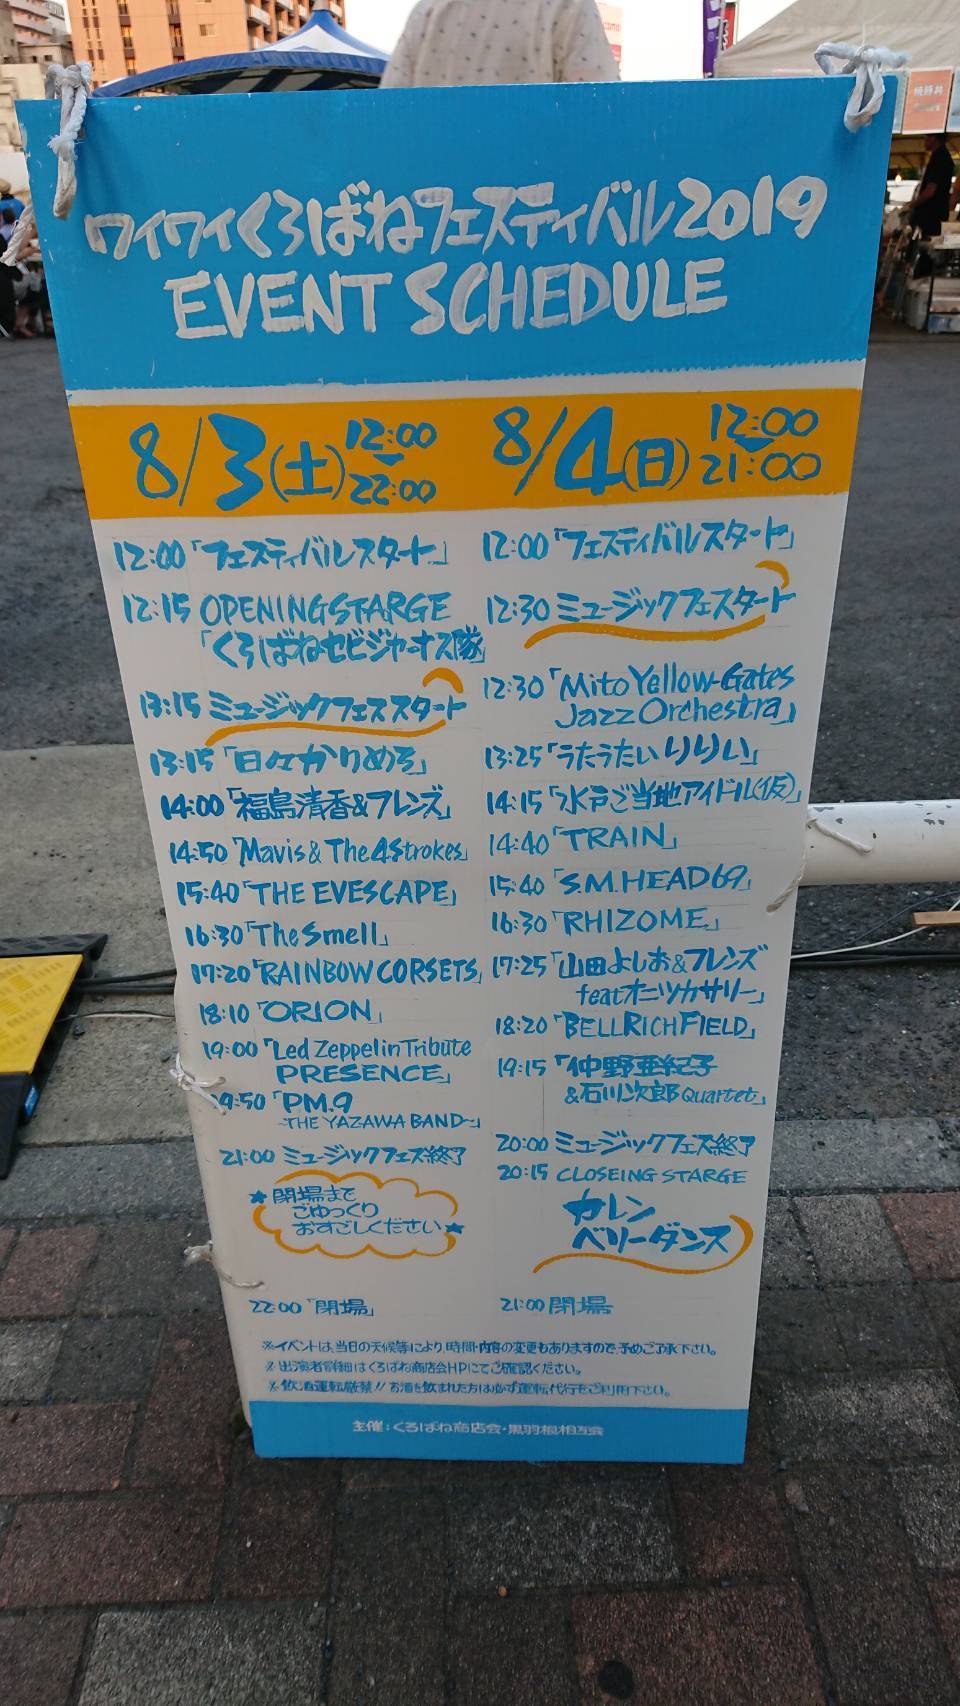 ワイワイくろばねフェスティバル2019
EVENT SCHEDULE
8/3(土) 12:00
22:00
12:00「フェスティバルスタート」
12:15 OPENINGSTARGE
「くろばねセビジャーオス隊」
13:15 ミュージックフェススタート
13:15「日々かりめろ」
14:00「福島清香&フレンズ」
14:50「Mavis & The 4Strokes」
15:40「THE EVESCAPE」
16:30「The Smell」
17:20「RAINBOW CORSETS」
18:10「ORION」
19:00「Led Zeppelin Tribute
PRESENCE」
19:50「P.M.9
~THE YAZAWA BAND~」
21:00 ミュージックフェス終了
★閉場まで
ごゆっくり
おすごしください★
22:00「閉場」
8/4(日) 12:00
21:00
12:00「フェスティバルスタート」
12:30 ミュージックフェスタート
12:30「Mito Yellow-Gates
Jazz Orchestra」
13:25「うたうたいりりぃ」
14:15「水戸ご当地アイドル(仮)」
14:40「TRAIN」
15:40「S.M.HEAD69」
16:30「RHIZOME」
17:25「山田よしお&フレンズ
featオニツカサリー」
18:20「BELLRICHFIELD」
19:15「仲野亜紀子
&石川次郎Quartet」
20:00 ミュージックフェス終了
20:15 CLOSEING STARGE
カレン
ベリーダンス
21:00 閉場
※イベントは、当日の天候等により、時間・内容の変更もありますので、予めご了承下さい。
※出演者詳細はくろばね商店会HPにてご確認ください。
※飲酒運転厳禁!!お酒を飲まれた方は必ず運転代行をご利用下さい。
主催:くろばね商店会・黒羽根相互会